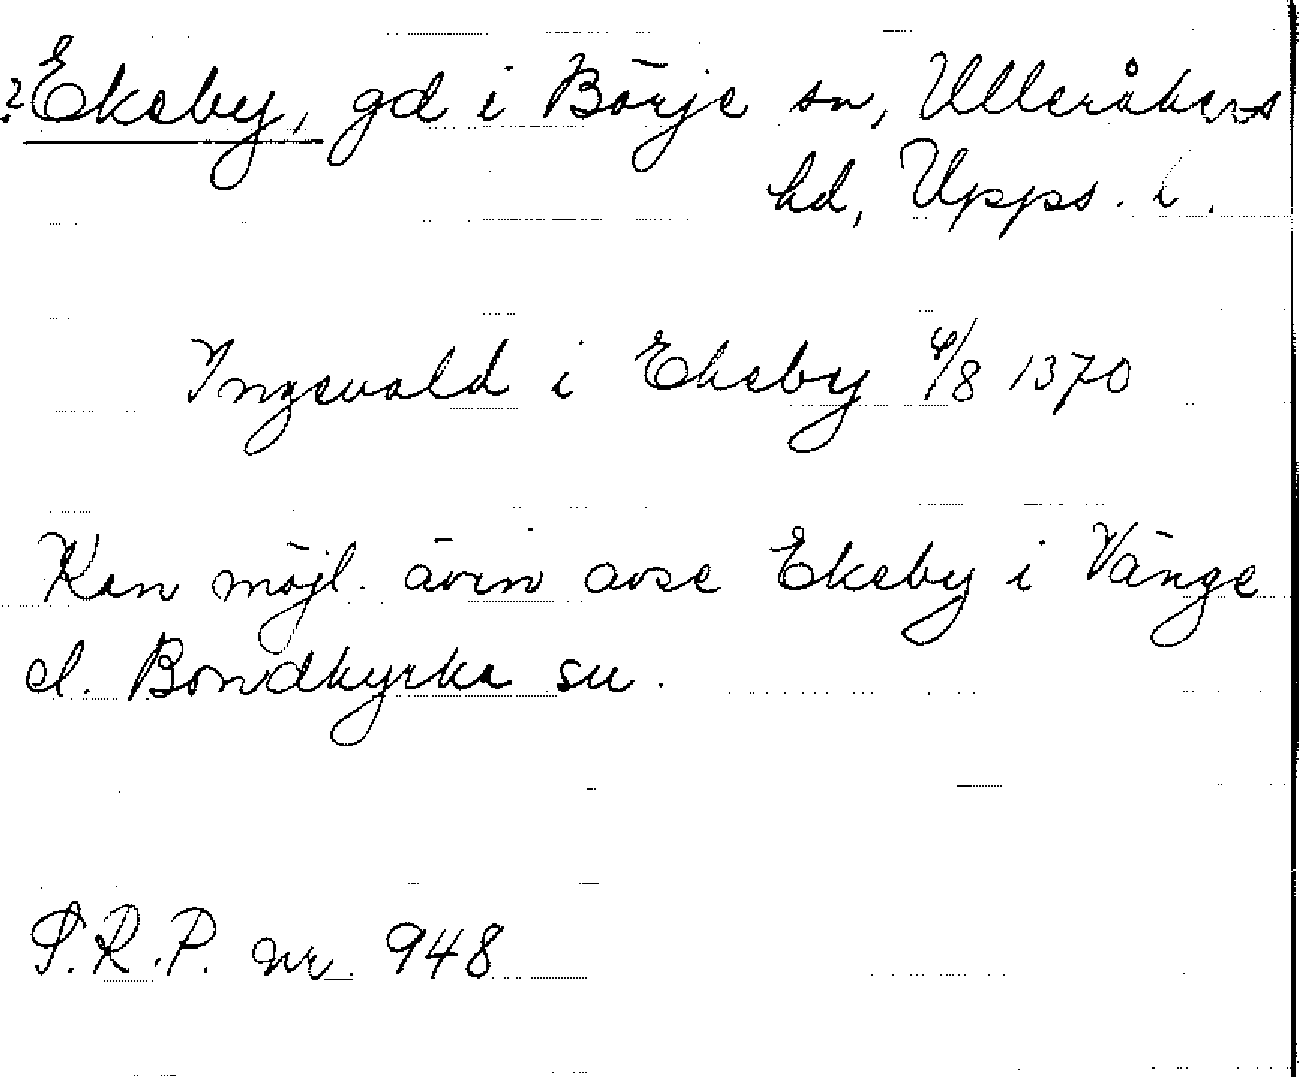 ? Ekeby, gd i Börje sn, Ulleråkers
hd, Upps. l.
Yngevald i Ekeby 4/8 1370
Kan möjl. även avse Ekeby i Vänge
el. Bondkyrka sn.
S.R.P. nr. 948